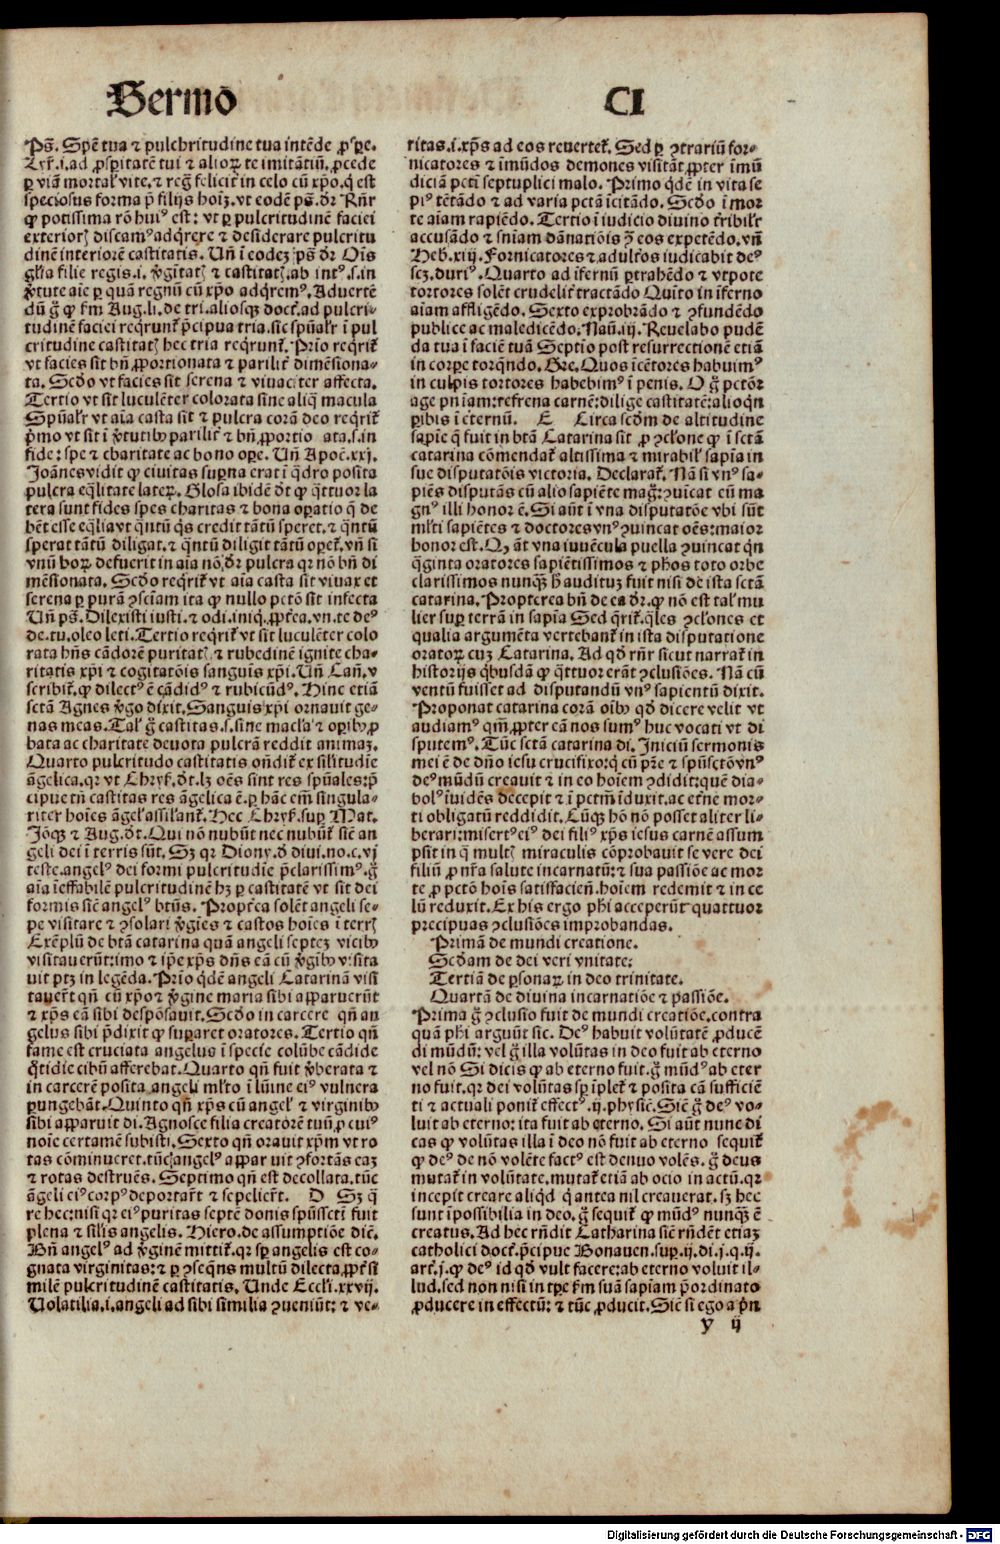 Sermo CI
Ps̄. Spē tua ⁊ pulchritudine tua intēde ꝓspe.
Lyr̄. i. ad ꝓsꝑitatē tui ⁊ alioꝝ te imitātiū. ꝓcede
ꝑ viā mortal' vite. ⁊ reg̃ felicit̄ in celo cū xp̄o. q̇ est
speciosus forma p̄ filijs hoīꝫ. vt eodē ps̄. dr̄ Rn̄r
ꝙ potissima rō huiꝰ est: vt ꝑ pulcritudinē faciei
exterioꝝ discamꝰ adq̇rere ⁊ desiderare pulcritu
dinē interiorē castitatis. Un̄ i eodeꝫ ps̄. dr̄ Oīs
gl'ia filie regis. i. v̄gītatꝭ ⁊ castitatꝭ. ab intꝰ. s. in
v̄tute aīe ꝑ quā regnū cū xp̄o adqremꝰ. Advertē
dū g̃ ꝙ ẜm Aug. li. de tri. aliosqꝫ doct̄. ad pulcri-
tudinē faciei reqrunt̄ p̄cipua tria. sic spūal'r ī pul
critudine castitatꝭ hec tria reqrunt̄. Prīo reqrit̄
vt facies sit bn̄ ꝓportionata ⁊ parilit̄ dimēsiona-
ta. Scd̄o vt facies sit serena ⁊ vivaciter affecta.
Tertio vt sit luculēter colorata sine aliq̄ macula
Spūal'r vt aīa casta sit ⁊ pulcra corā deo reqrit̄
p̄mo vt sit ī v̄tutibꝰ parilit̄ ⁊ bn̄ ꝓportio ata. s. in
fide: spe ⁊ charitate ac bono oꝑe. Un̄ Apoc̄. xxj.
Joānes vidit ꝙ civitas suꝑna erat ī q̄dro posita
pulcra eq̄litate lateꝝ. Glosa ibidē dt̄ ꝙ q̄ttuor la
tera sunt fides spes charitas ⁊ bona oꝑatio q̄ de
bēt esse eq̄lia vt q̄ntū q̇s credit tātū speret. ⁊ q̄ntū
sperat tātū diligat. ⁊ q̄ntū diligit tātū oꝑet̄. vn̄ si
vnū hoꝝ defuerit in aīa nō dr̄ pulcra qr nō bn̄ di
mēsionata. Scd̄o reqrit̄ vt aīa casta sit vivax et
serena ꝑ purā ꝯsciam ita ꝙ nullo pctō sit infecta
Un̄ ps̄. Dilexisti iusti. ⁊ odi. iniq̇. ꝓpt̄ea. vn. te deꝰ
de. tu. oleo leti. Tertio reqrit̄ vt sit luculēter colo
rata hn̄s cādorē puritatꝭ ⁊ rubedinē ignite cha-
ritatis xp̄i ⁊ cogitatōis sanguīs xp̄i. Un̄ Can̄. v
scribit̄. ꝙ dilectꝰ ē cādidꝰ ⁊ rubicūdꝰ. Hinc etiā
sctā Agnes v̄go dixit. Sanguis xp̄i ornavit ge-
nas meas. Tal' g̃ castitas. s. sine macl'a ⁊ oꝑibꝰ ꝓ
bata ac charitate devota pulcrā reddit animaꝫ.
Quarto pulcritudo castitatis on̄dit̄ ex sil'itudīe
āgelica. qr vt Chrys̄. dt̄. lꝫ oēs sint res spūales: p̄
cipue tn̄ castitas res āgelica ē. ꝑ hāc em̄ singula-
riter hoīes āgel' assil'ant̄. Hec Chrys̄. suꝑ Mat.
Jōqꝫ ⁊ Aug. dt̄. Qui nō nubūt nec nubūt̄ sic̄ an
geli dei ī terris sūt. Sꝫ qr Diony. d̄ divi. no. c. vj
teste. angelꝰ dei formi pulcritudīe p̄clarissimꝰ. g̃
aīa īeffabilē pulcritudinē hꝫ ꝑ castitatē vt sit dei
formis sic̄ angelꝰ btūs. Propt̄ea solēt angeli se-
pe visitare ⁊ ꝯsolari v̄gīes ⁊ castos hoīes ī terrꝭ
Exēplū de btā catarina quā angeli septeꝫ vicibꝰ
visitaverūt: imo ⁊ ip̄e xp̄s dn̄s eā cū v̄gībꝰ visita
vit ptꝫ in legēda. Prīo q̇dē angeli Catarinā visi
taver̄t qn̄ cū xp̄o ⁊ v̄gine maria sibi apparuerūt
⁊ xp̄s eā sibi despōsavit. Scd̄o in carcere qn̄ an
gelus sibi p̄dixit ꝙ suꝑaret oratores. Tertio qn̄
fame est cruciata angelus ī specie colūbe cādide
q̄tidie cibū afferebat. Quarto qn̄ fuit v̄berata ⁊
in carcerē posita angeli ml'to ī lūine eiꝰ vulnera
ꝑungebāt. Quinto qn̄ xp̄s cū angel' ⁊ virginibꝰ
sibi apparuit di. Agnosce filia creatorē tuū ꝓ cuiꝰ
noīe certamē subisti. Sexto qn̄ oravit xp̄m vt ro
tas cōminueret. tūc angelꝰ apparuit ꝯfortās eaꝫ
⁊ rotas destruēs. Septimo qn̄ est decollata. tūc
āgeli eiꝰ corpꝰ deportar̄t ⁊ sepelier̄t. D Sꝫ q̄
re hec: nisi qr eiꝰ puritas septē donis spūssctī fuit
plena ⁊ sil'is angelis. Hiero. de assumptiōe dic̄.
Bn̄ angelꝰ ad v̄ginē mittit̄. qr sꝑ angelis est co-
gnata virginitas: ⁊ ꝑ ꝯseqn̄s multū dilecta. ꝓpt̄ si
milē pulcritudinē castitatis. Unde Eccl'i. xxvij.
Volatilia. i. angeli ad sibi similia ꝯveniūt: ⁊ ve-
ritas. i. xp̄s ad eos revertet̄. Sed ꝑ ꝯtrariū for-
nicatores ⁊ īmūdos demones visitāt ꝓpter īmū
diciā pctī septuplici malo. Primo q̇dē in vita se
piꝰ tētādo ⁊ ad varia pctā īcitādo. Scd̄o ī mor
te aīam rapiēdo. Tertio ī iudicio divino tr̄ibil'r
accusādo ⁊ sn̄iam dānatiōis ꝯ̄ eos expetēdo. vn̄
Heb. xiij. Fornicatores ⁊ adult̄os iudicabit deꝰ
scꝫ. duriꝰ. Quarto ad īfernū ꝑtrahēdo ⁊ vtpote
tortores solēt crudelit̄ tractādo Quīto in īferno
aīam affligēdo. Sexto exprobrādo ⁊ ꝯfundēdo
publice ac maledicēdo. Naū. iij. Revelabo pudē
da tua ī faciē tuā Septīo post resurrectionē etiā
in corꝑe torq̄ndo. Gre. Quos īcētores habuimꝰ
in culpis tortores habebimꝰ ī penis. O g̃ pctōr
age pn̄iam: refrena carnē: dilige castitatē: alioqn
ꝑibis ī eternū. E Circa scd̄m de altitudine
sapīe q̄ fuit in btā Catarina sit ꝓ ꝯcl'one ꝙ ī sctā
catarina cōmendat̄ altissima ⁊ mirabil' sapīa in
sue disputatōis victoria. Declarat̄. Nā si vnꝰ sa-
piēs disputās cū alio sapiēte mag̃: ꝯvīcat eum ma
gnꝰ illi honor ē. Si aūt ī vna disputatōe vbi sūt
ml'ti sapiētes ⁊ doctores vnꝰ ꝯvincat oēs: maior
honor est. Qꝫ āt vna iuvēcula puella ꝯvincat qn
q̄ginta oratores sapiētissimos ⁊ ph̄os toto orbe
clarissimos nunqꝫ h̄ auditū fuit nisi de ista sctā
catarina. Propterea bn̄ de ea dr̄. ꝙ nō est tal' mu
lier suꝑ terrā in sapīa Sed q̄rit̄. q̄les ꝯcl'ones et
qualia argumēta vertebant̄ in ista disputatione
oratoꝝ cuꝫ Catarina. Ad qd̄ rn̄r sicut narrat̄ in
historijs q̇busdā ꝙ q̄ttuor erāt ꝯclusiōes. Nā cū
ventū fuisset ad disputandū vnꝰ sapientū dixit.
Proponat catarina corā oībꝰ qd̄ dicere velit vt
audiamꝰ qm̄ ꝓpter eā nos sumꝰ huc vocati vt di
sputemꝰ. Tūc sctā catarina di. Iniciū sermonis
mei ē de dn̄o iesu crucifixo: q̇ cū pr̄e ⁊ spūsctō vnꝰ
deꝰ mūdū creavit ⁊ in eo hoīem ꝯdidit: quē dia-
bolꝰ īvidēs decepit ⁊ ī pctm̄ īduxit. ac et̄ne mor-
ti obligatū reddidit. Cūqꝫ hō nō posset aliter li-
berari: misertꝰ eiꝰ dei filiꝰ xp̄s iesus carnē assum
psit in q̄ multꝭ miraculis cōprobavit se vere dei
filiū ꝓ nr̄a salute incarnatū: ⁊ sua passiōe ac mor
te ꝓ pctō hoīs satisfacien̄. hoīem redemit ⁊ in ce
lū reduxit. Ex his ergo ph̄i acceperūt quattuor
precipuas ꝯclusiōes improbandas.
Primā de mundi creatione.
Scd̄am de dei veri vnitate:
Tertiā de ꝑsonaꝝ in deo trinitate.
Quartā de divina incarnatiōe ⁊ passiōe.
Prima g̃ ꝯclusio fuit de mundi creatiōe. contra
quam ph̄i arguūt sic. Deꝰ habuit volūtatē ꝓducē
di mūdū: vel g̃ illa volūtas in deo fuit ab eterno
vel nō Si dicis ꝙ ab eterno fuit. g̃ mūdꝰ ab eter
no fuit. qr dei volūtas sꝑ īplet̄ ⁊ posita cā sufficiē
ti ⁊ actuali ponit̄ effectꝰ. ij. physic̄. Sic̄ g̃ deꝰ vo-
luit ab eterno: ita fuit ab eterno. Si aūt nunc di
cas ꝙ volūtas illa ī deo nō fuit ab eterno sequit̄
ꝙ deꝰ de nō volēte factꝰ est denuo volēs. g̃ deus
mutat̄ in volūtate. mutat̄ etiā ab ocio in actū. qr
incepit creare aliqd̄ q̇ antea nil creauerat. sꝫ hec
sunt īpossibilia in deo. g̃ sequit̄ ꝙ mūdꝰ nunqꝫ ē
creatus. Ad hec rn̄dit Catharina sic̄ rn̄dēt etiaꝫ
catholici doct̄. p̄cipue Bonaven. suꝑ. ij. di. j. q. ij.
art̄. j. ꝙ deꝰ id qd̄ vult facere: ab eterno voluit il-
lud. sed non nisi in tꝑe ẜm suā sapiam p̄ordinato
ꝓducere in effectū: ⁊ tūc ꝓducit. Sic̄ si ego a pn̄
y ij
Digitalisierung gefördert durch die Deutsche Forschungsgemeinschaft - DFG